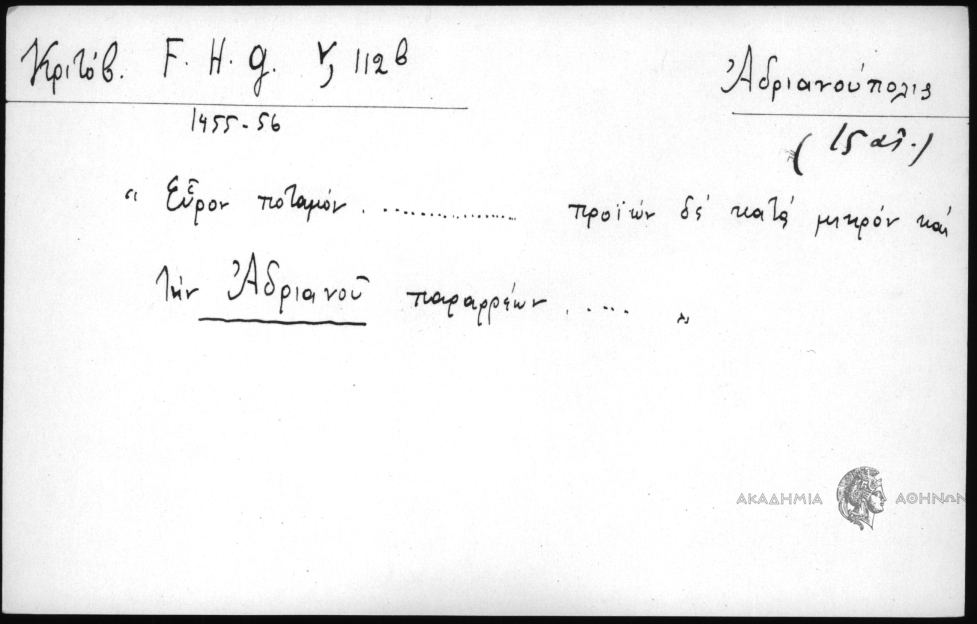 Κριτόβ. F. H. g. V, 112 β
Ἀδριανούπολις
1455-56
(15 αἰ.)
“ Εὗρον ποταμόν ................... προϊών δέ κατά μικρόν καί
τήν Ἀδριανοῦ παραρρέων ..... ”
ΑΚΑΔΗΜΙΑ ΑΘΗΝΩΝ